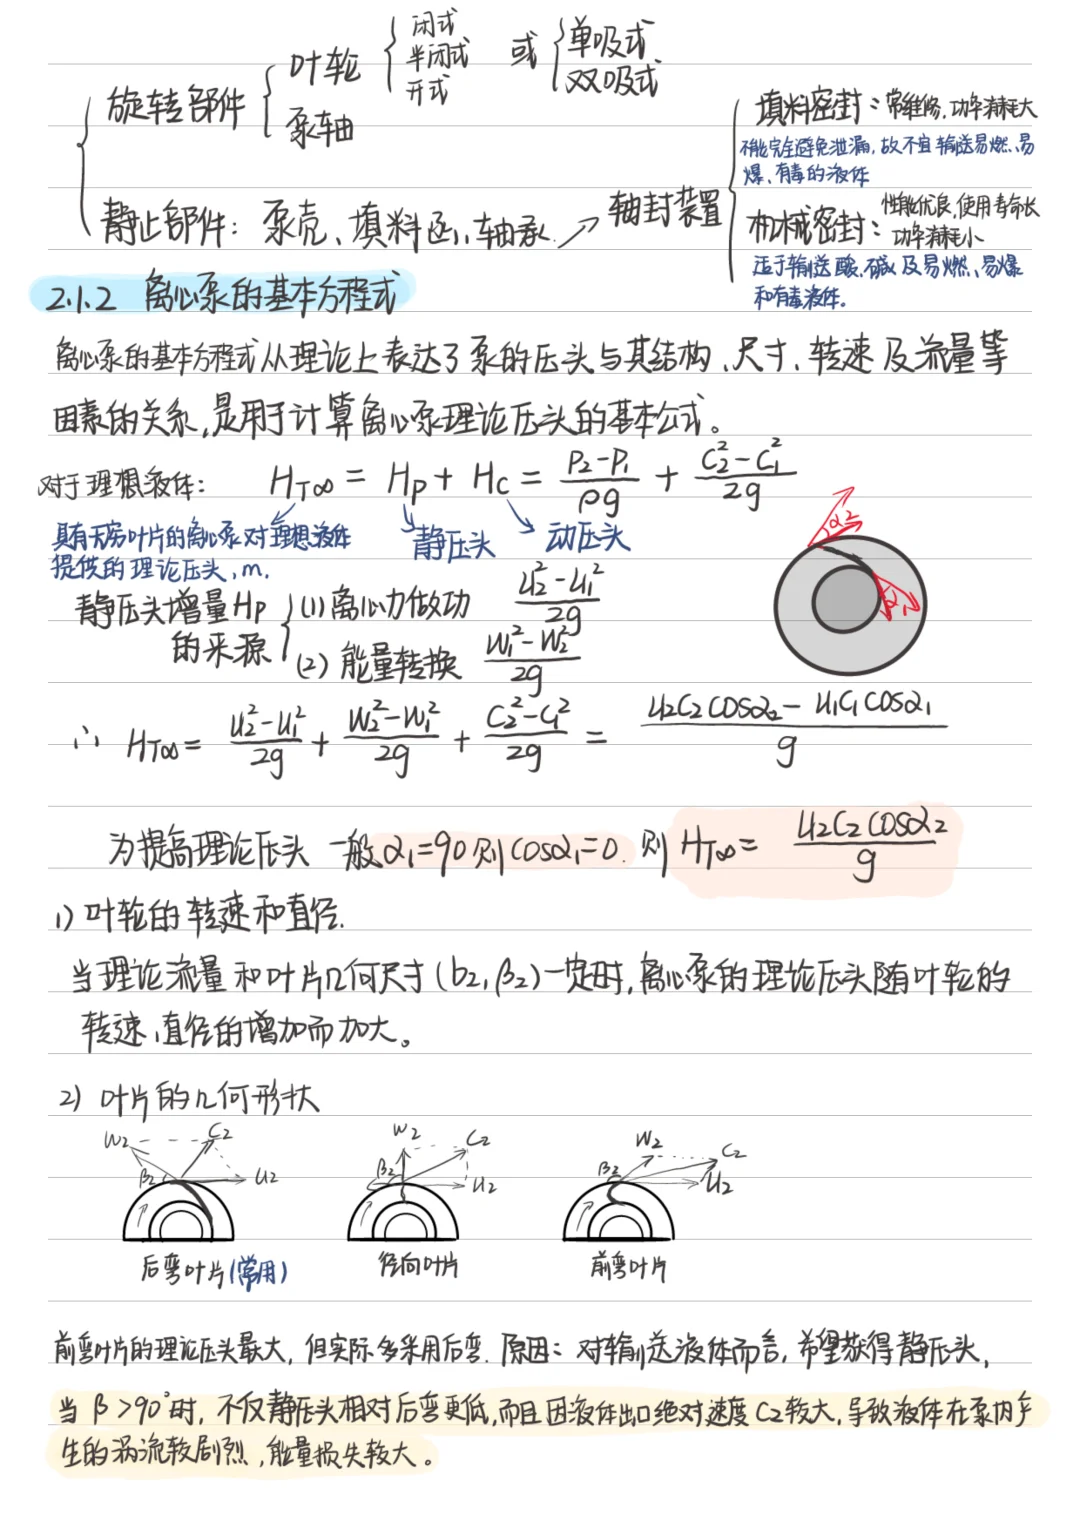 旋转部件 { 叶轮 { 闭式 半闭式 开式 或 { 单吸式 双吸式
泵轴
静止部件：泵壳、填料函、轴承 → 轴封装置
填料密封：常维修、功率消耗大
不能完全避免泄漏，故不宜输送易燃、易
爆、有毒的液体
机械密封：性能优良，使用寿命长
功率消耗小
适于输送酸、碱及易燃、易爆
和有毒液体．
2.1.2 离心泵的基本方程式
离心泵的基本方程式从理论上表达了泵的压头与其结构、尺寸、转速及流量等
因素的关系，是用于计算离心泵理论压头的基本公式。
对于理想液体： H_T∞ = H_p + H_c = (P₂-P₁)/(ρg) + (C₂²-C₁²)/(2g)
具有无穷叶片的离心泵对理想液体
提供的理论压头，m．
静压头
动压头
α₂
α₁
静压头增量Hp
的来源
(1) 离心力做功 (u₂²-u₁²)/(2g)
(2) 能量转换 (W₁²-W₂²)/(2g)
∴ H_T∞ = (u₂²-u₁²)/(2g) + (W₂²-W₁²)/(2g) + (C₂²-C₁²)/(2g) = (u₂C₂cosα₂ - u₁C₁cosα₁)/g
为提高理论压头 一般α₁=90则cosα₁=0．则 H_T∞ = (u₂C₂cosα₂)/g
1) 叶轮的转速和直径．
当理论流量和叶片几何尺寸(b₂,β₂)一定时，离心泵的理论压头随有叶轮的
转速、直径的增加而加大。
2) 叶片的几何形状
W₂ C₂ β₂ u₂
W₂ C₂ β₂ u₂
W₂ C₂ β₂ u₂
后弯叶片(常用)
径向叶片
前弯叶片
前弯叶片的理论压头最大，但实际多采用后弯．原因：对输送液体而言，希望获得静压头，
当β>90°时，不仅静压头相对后弯更低，而且因液体出口绝对速度C₂较大，导致液体在泵内产
生的涡流较剧烈，能量损失较大。